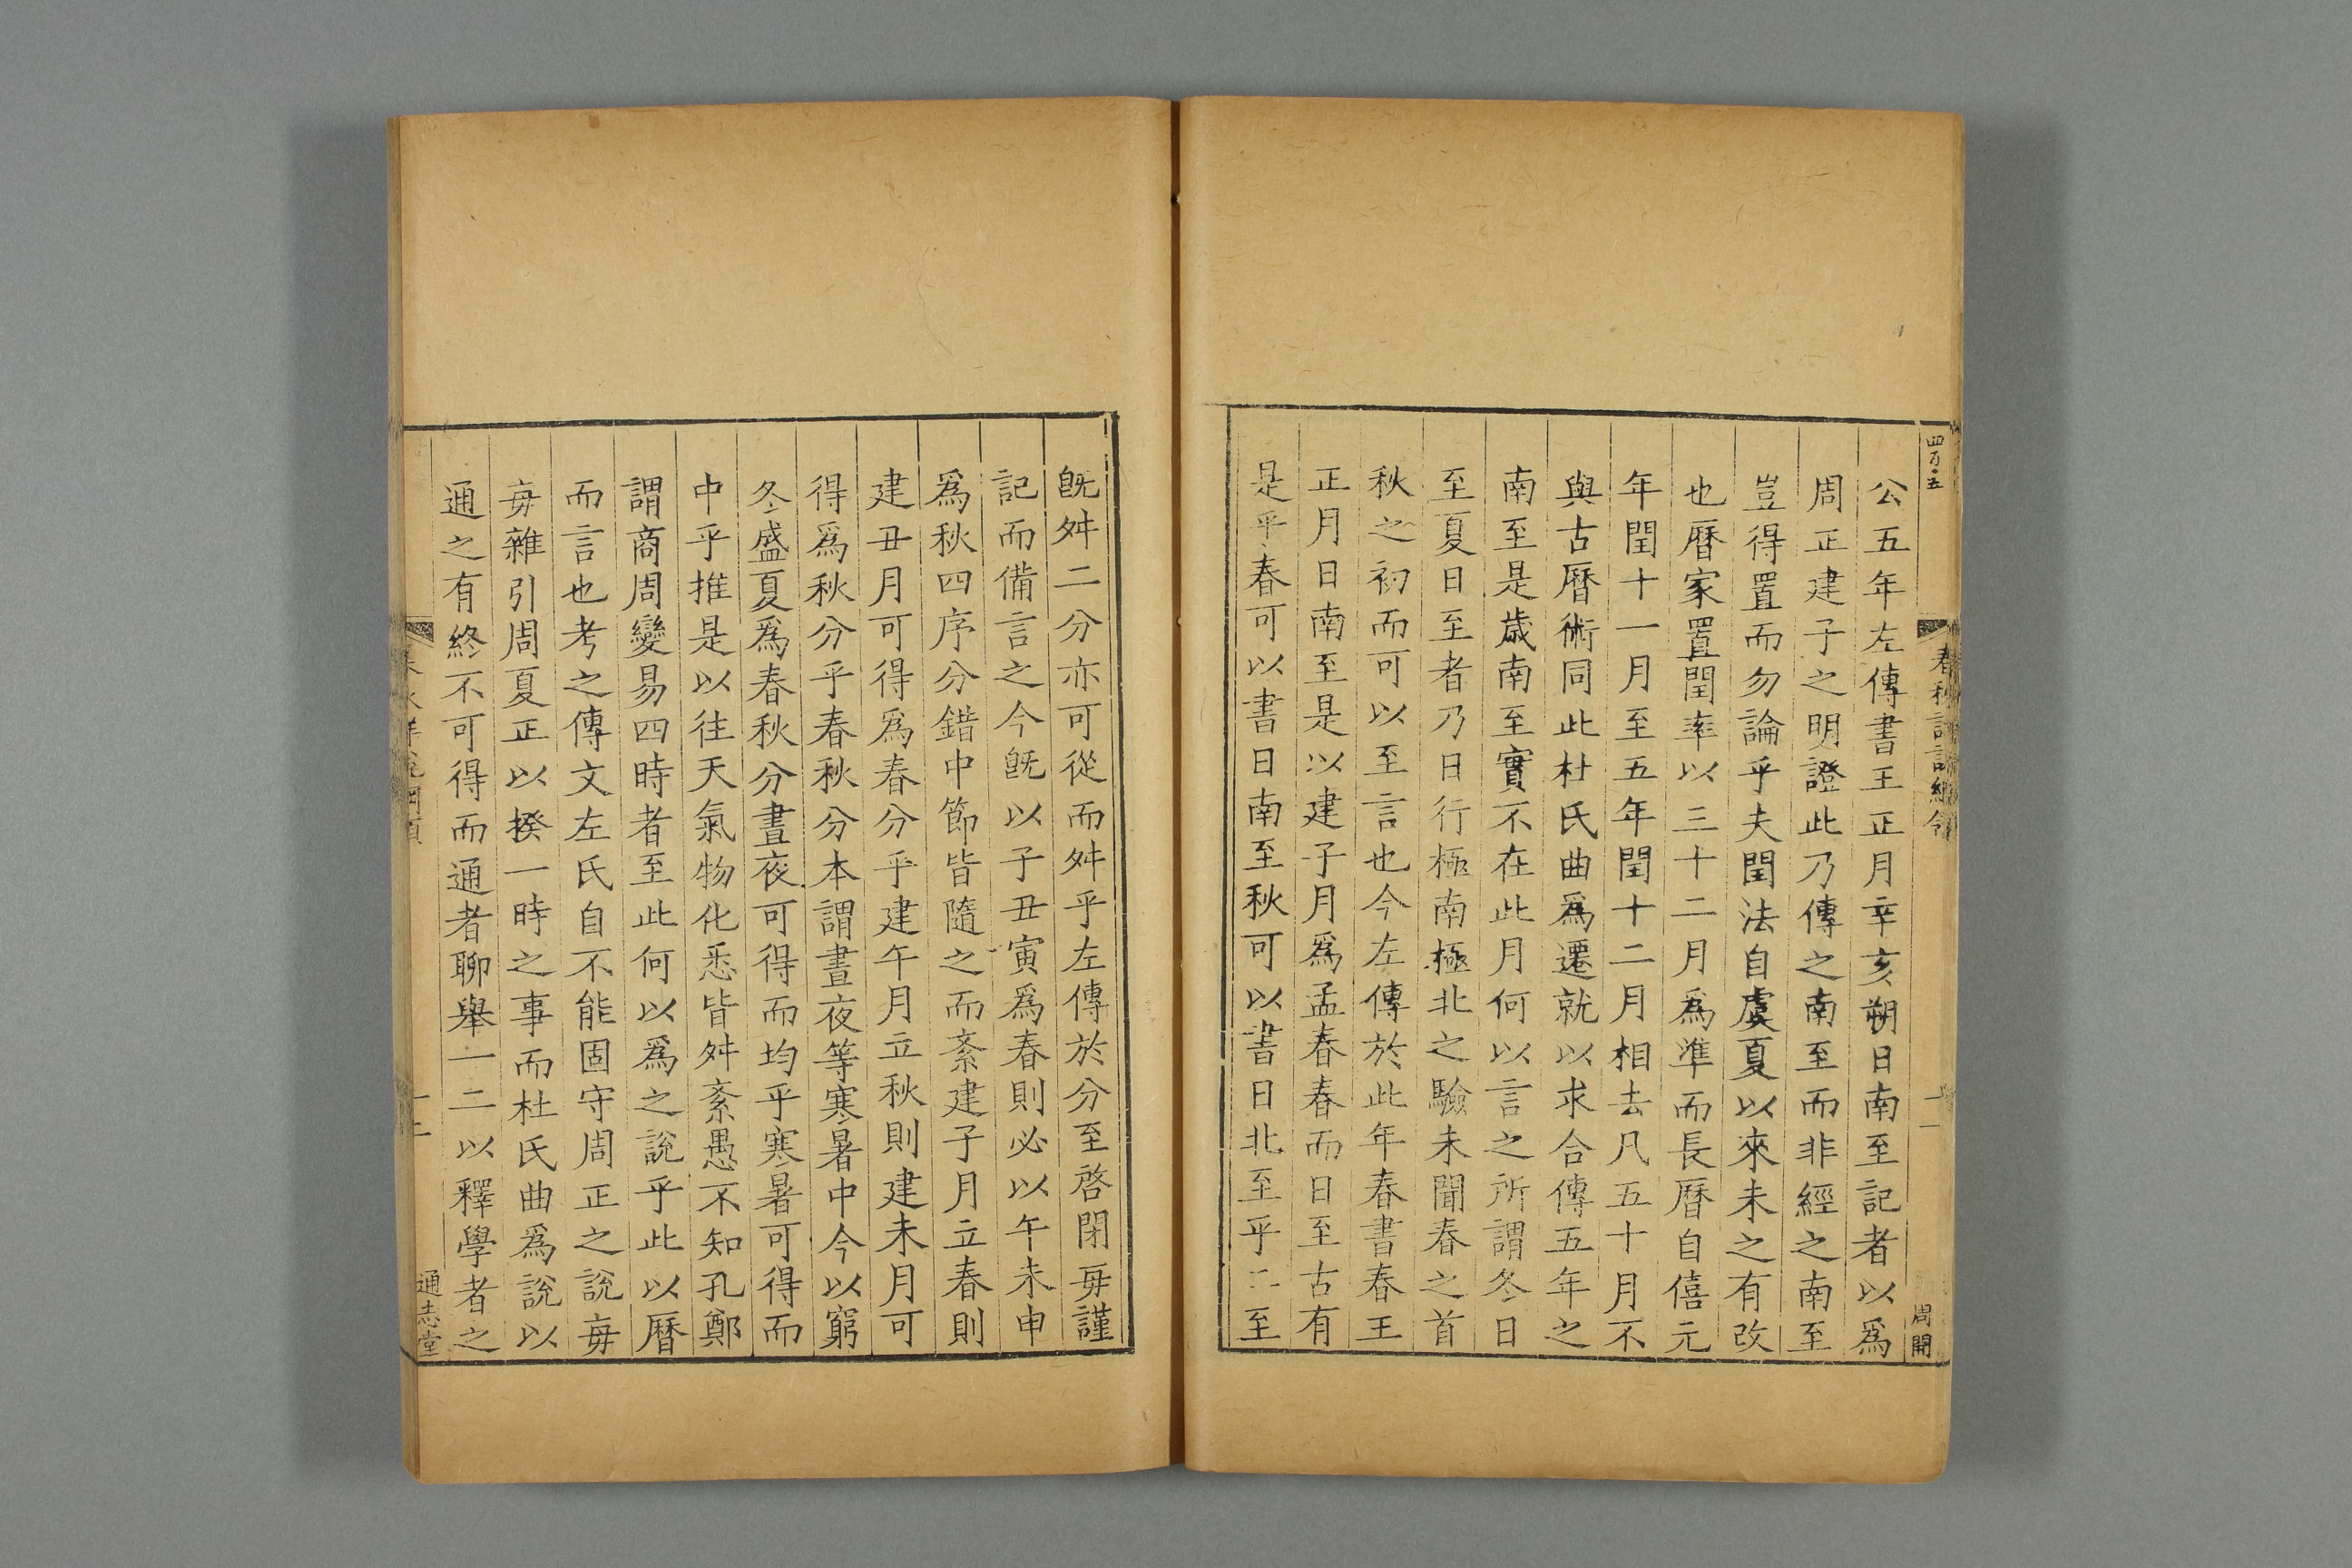 公五年左傳書王正月辛亥朔日南至記者以爲
周正建子之明證此乃傳之南至而非經之南至
豈得置而勿論乎夫閏法自虞夏以來未之有改
也曆家置閏率以三十二月爲準而長曆自僖元
年閏十一月至五年閏十二月相去凡五十月不
與古曆術同此杜氏曲爲遷就以求合傳五年之
南至是歲南至實不在此月何以言之所謂冬日
至夏日至者乃日行極南極北之驗未聞春之首
秋之初而可以至言也今左傳於此年春書春王
正月日南至是以建子月爲孟春春而日至古有
是乎春可以書日南至秋可以書日北至乎二至
旣舛二分亦可從而舛乎左傳於分至啓閉毋謹
記而備言之今旣以子丑寅爲春則必以午未申
爲秋四序分錯中節皆隨之而紊建子月立春則
建丑月可得爲春分乎建午月立秋則建未月可
得爲秋分乎春秋分本謂晝夜等寒暑中今以窮
冬盛夏爲春秋分晝夜可得而均乎寒暑可得而
中乎推是以往天氣物化悉皆舛紊愚不知孔鄭
謂商周變易四時者至此何以爲之說乎此以曆
而言也考之傳文左氏自不能固守周正之說毎
毎雜引周夏正以揆一時之事而杜氏曲爲說以
通之有終不可得而通者聊舉一二以釋學者之
通志堂
周開